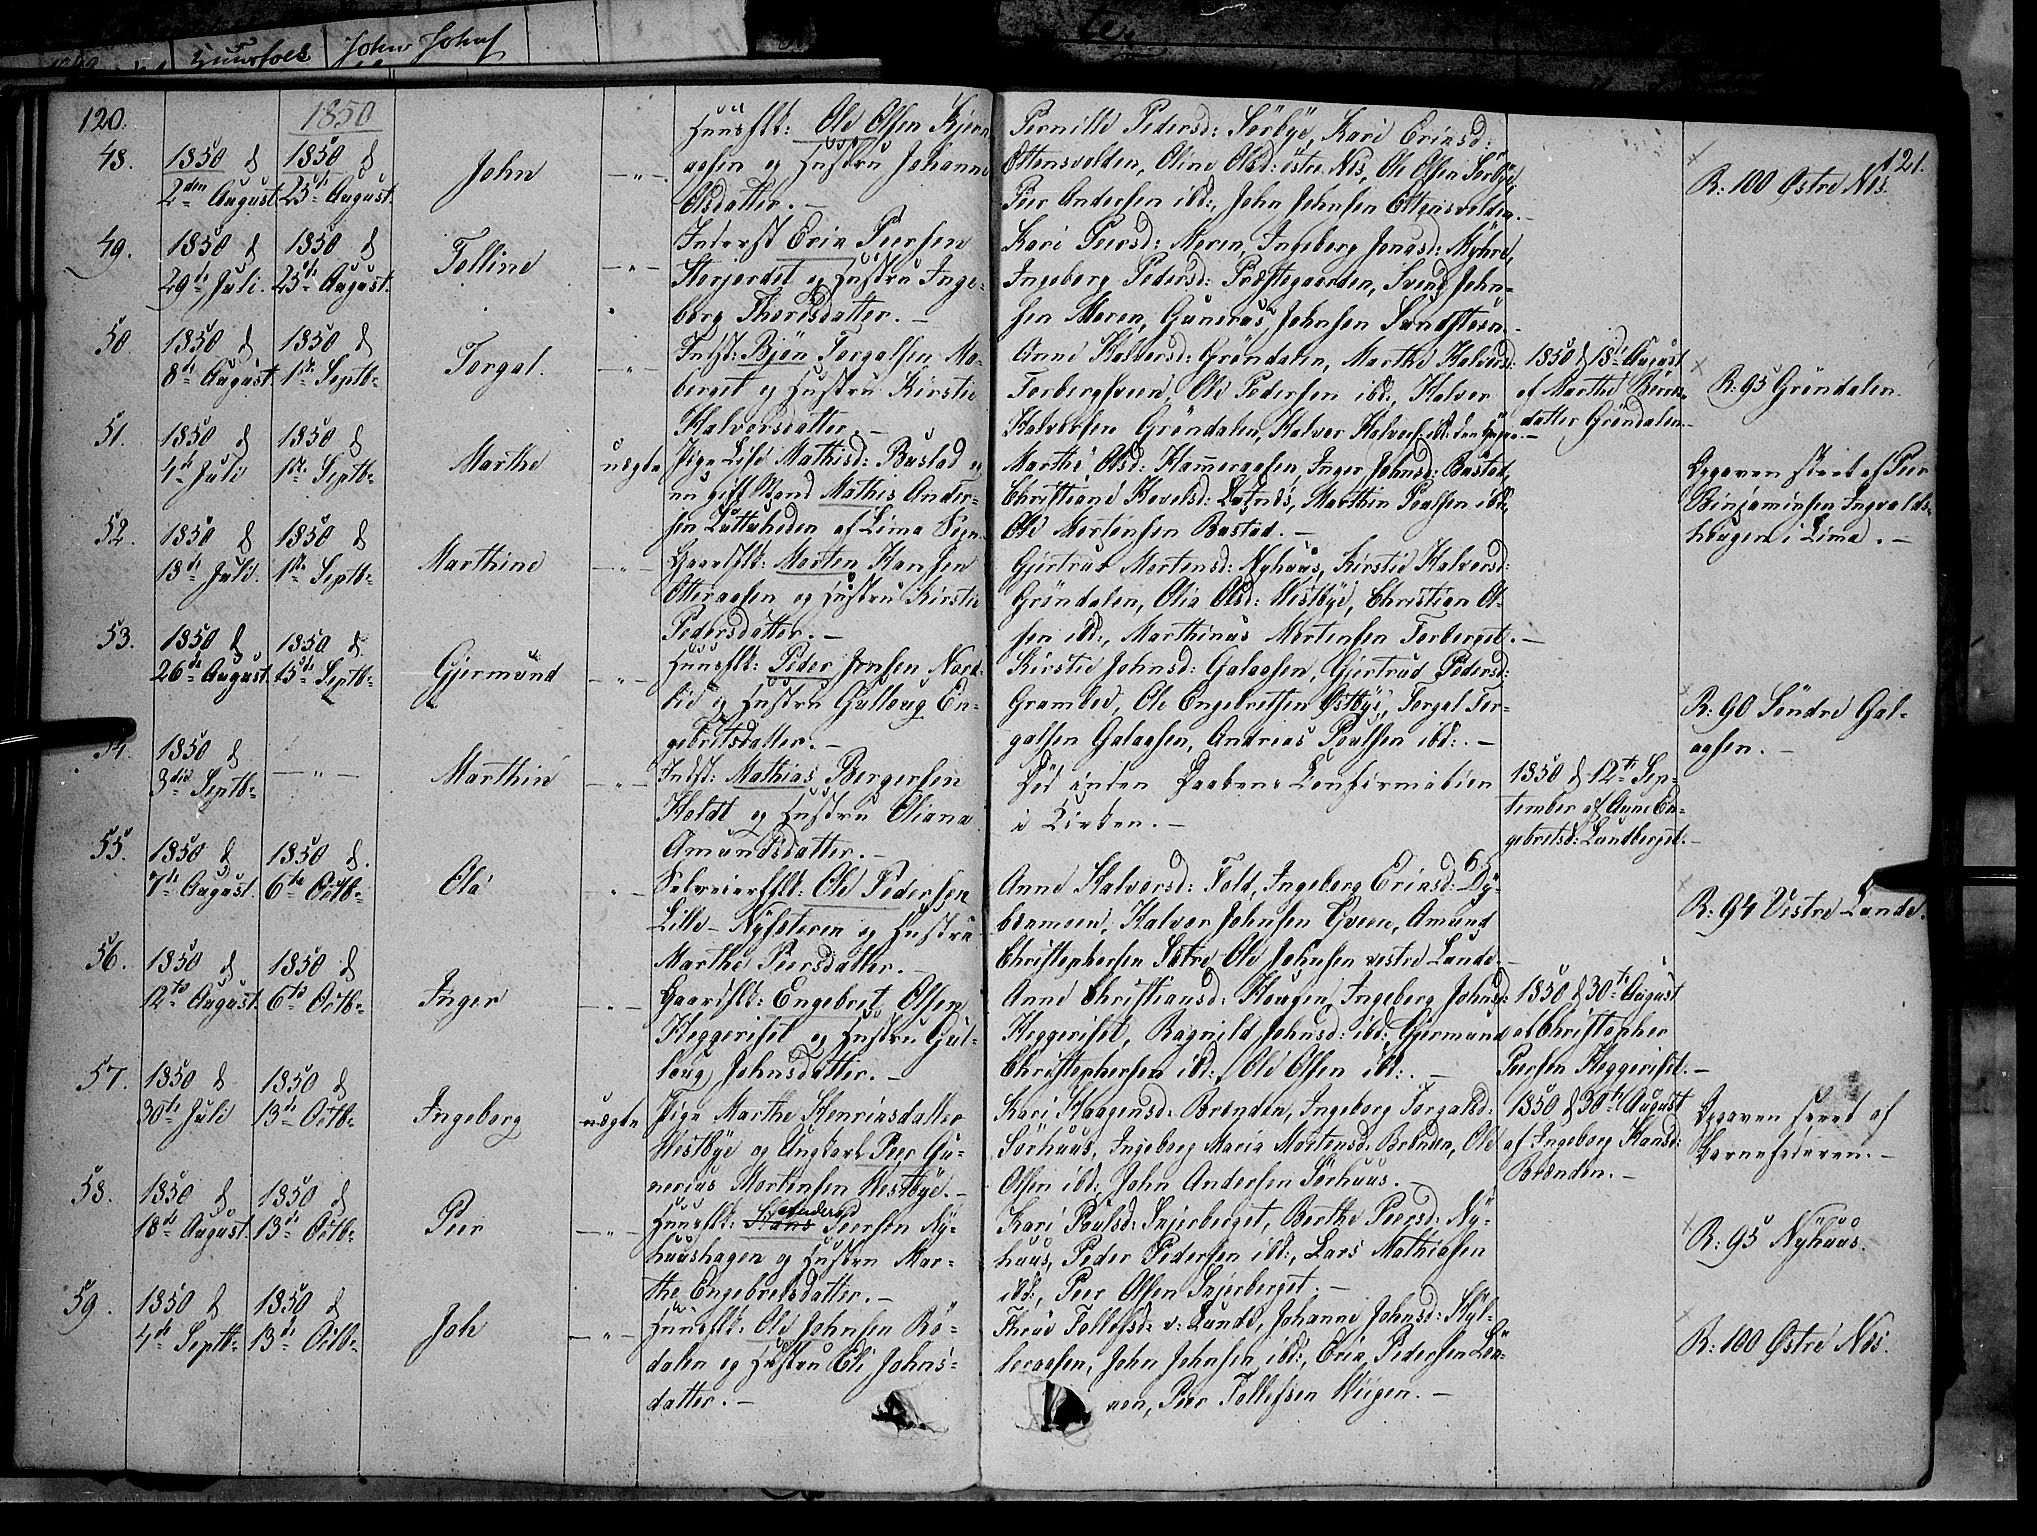 Huusfolk John Johnf
120.
1850
48.
1850 d
2den August
1850 d
25de August.
John
Huusflk: Ole Olsen Kjern
aasen og Hustru Johanne
Olsdatter. –
Pernille Pedersd: Sörbye, Kari Ericsd:
Ottensvolden, Oline Olsd: östre Nes, Ole Olsen Sörbye,
Peer Andersen ibd:, John Johnsen Ottensvolden. –
121.
R: 100 Østre Nes.
49.
1850 d
29de Juli.
1850 d
25de August.
Tolline
Inderst Eric Peersen
Storjordet og Hustru Inge-
borg Thoresdatter. –
Kari Peersd: Moren, Ingeborg Jonasd: Myhre,
Ingeborg Pedersd: Præstegaarden, Svend John-
sen Moren, Gunerus Johnsen Sundsteen.
50.
1850 d
8de August
1850 d
1ste Septb-
Torgal.
Indst: Björn Torgalsen Mo-
berget og Hustru Kirstie
Halvorsdatter. –
Anne Halvorsd: Gröndalen, Marthe Halvorsd:
Torbergsveen, Ole Pedersen ibd:, Halvor
Halvorsen Gröndalen, Halvor Halvors: ibd: den Yngre. –
1850 d 18de August
af Marthe Börns-
datter Gröndalen –
R: 95 Gröndalen.
51.
1850 d
4de Juli
1850 d
1ste Septb-
Marthe
uægte
Pige Lise Mathisd: Bustad og
en gift Mand Mathis Ander-
sen Luttuheden af Lima Sogn
Marthe Olsd: Hammeraasen, Inger Johnsd: Bastad,
Christiane Kevelsd: Lutnes, Marthin Poulsen ibd:,
Ole Mortensen Bastad. –
Opgaven skeet af Peer
Binjaminsen Ingvalds-
hougen i Lima. –
52.
1850 d
18de Juli.
1850 d
1ste Septb-
Marthine
Gaardflk: Morten Hansen
Otteraasen og Hustru Kirstie
Pedersdatter. –
Gjertrud Mortensd: Nyhuus, Kirstie Halvorsd:
Gröndalen, Olia Olsd: Westbye, Christian Ol-
sen ibd:, Marthinus Mortensen Torberget. –
53.
1850 d
26de August
1850 d
15de Septb-
Gjermund
Huusflk: Peder Jonsen Nord-
lie og Hustru Gulloug En-
gebretsdatter. –
Kirstie Johnsd: Galaasen, Gjertrud Pedersd:
Gramboe, Ole Engebretsen Östbye, Torgal Tor-
galsen Galaasen, Andreas Poulsen ibd: –
R: 90 Söndre Gal-
aasen. –
54.
1850 d
3die Septb-
– " –
Marthin
Indst: Mathias Bergersen
Holdt og Hustru Oliana
Amundsdatter. –
Död inden Daabens Confirmation
i Kirken. –
1850 d 12te Sep-
tember af Anne En-
gebretsd: Lundberget. –
55.
1850 d
7de August.
1850 d.
6te Octb-
Ole
Selveierflk: Ole Pedersen
Lille-Nysæteren og Hustru
Marthe Peersdatter. –
Anne Halvorsd: Told, Ingeborg Ericsd: Dy-
bremoen, Halvor Johnsen Qveen, Amund
Christophersen Sætre Ole Johnsen vestre Lunde. –
65
R: 94 Vestre Lunde.
56.
1850 d
12te August.
1850 d
6te Octb-
Inger
Gaardflk: Engebret Olsen
Heggeriset og Hustru Gul-
loug Johnsdatter. –
Anne Christiansd: Hougen, Ingeborg Johnsd:
Heggeriset, Ragnild Johnsd: ibd:, Gjermund
Christophersen ibd:, Ole Olsen ibd: –
1850 d 30te August
af Christopher
Peersen Heggeriset. –
57.
1850 d
30te Juli
1850 d
13de Octb-
Ingeborg
uægte
Pige Marthe Henricsdatter
Westbye og Ungkarl Peer Gu-
nerius Mortensen Westbye. –
Kari Haagensd: Brenden, Ingeborg Torgalsd:
Sörhuus, Ingeborg Maria Mortensd: Brenden, Ole
Olsen ibd:, John Andersen Sörhuus. –
1850 d 30te August
af Ingeborg Hansd:
Brænden. –
Opgaven skeet af
Barnefaderen. –
58.
1850 d
18de August
1850 d
13de Octb-
Peer
Huusflk: Hans Peersen Ny-
huushagen og Hustru Mar-
the Engebretsdatter. –
Kari Poulsd: Snjerberget, Berthe Peersd: Ny-
huus, Peder Pedersen ibd:, Lars Mathiasen
ibd:, Peer Olsen Snjerberget. –
R: 95 Nyhuus.
59.
1850 d
4de Septb-
1850 d
13de Octb-
Joh
Huusflk: Ole Johnsen Rö-
dalen og Hustru Eli Johns-
datter. –
Thrine Tollefsd: v: Lunde, Johanne Johnsd: Hyl-
leraasen, John Johnsen ibd:, Eric Pedersen Lön-
nen, Peer Tollefsen Wiigen. –
R: 100 Østre Nes.